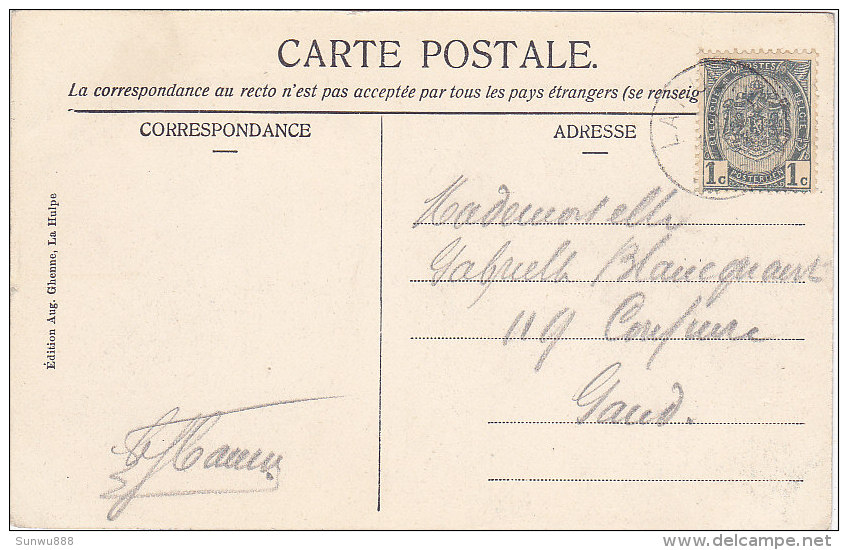 CARTE POSTALE.
La correspondance au recto n'est pas acceptée par tous les pays étrangers (se renseig
CORRESPONDANCE
ADRESSE
POSTES
1c POSTERIJEN 1c
LA
Édition Aug. Ghenne, La Hulpe
Mademoiselle
Gabrielle
119
Gand.
Sunwu888
delcampe.net